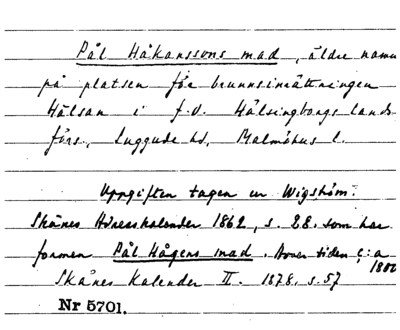 Pål Håkanssons mad, äldre namn
på platsen för brunnsinrättningen
Hälsan i f.d. Hälsingborgs lands-
förs., Luggude hd, Malmöhus l.
Uppgiften tagen ur Wigström:
Skånes Adresskalender 1862, s. 28. som har
formen Pål Hågens mad. Avser tiden c:a
1800
Skånes Kalender II. 1878, s. 57
Nr 5701.